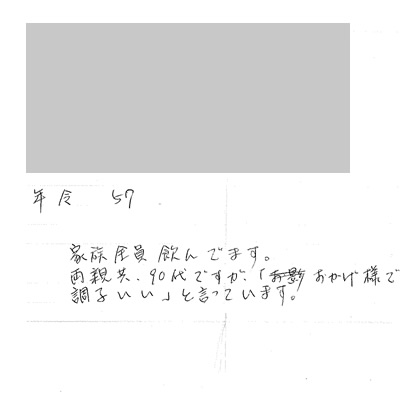 年令 57
家族全員飲んでます。
両親共、90代ですが、「おかげ様で
調子いい」と言っています。